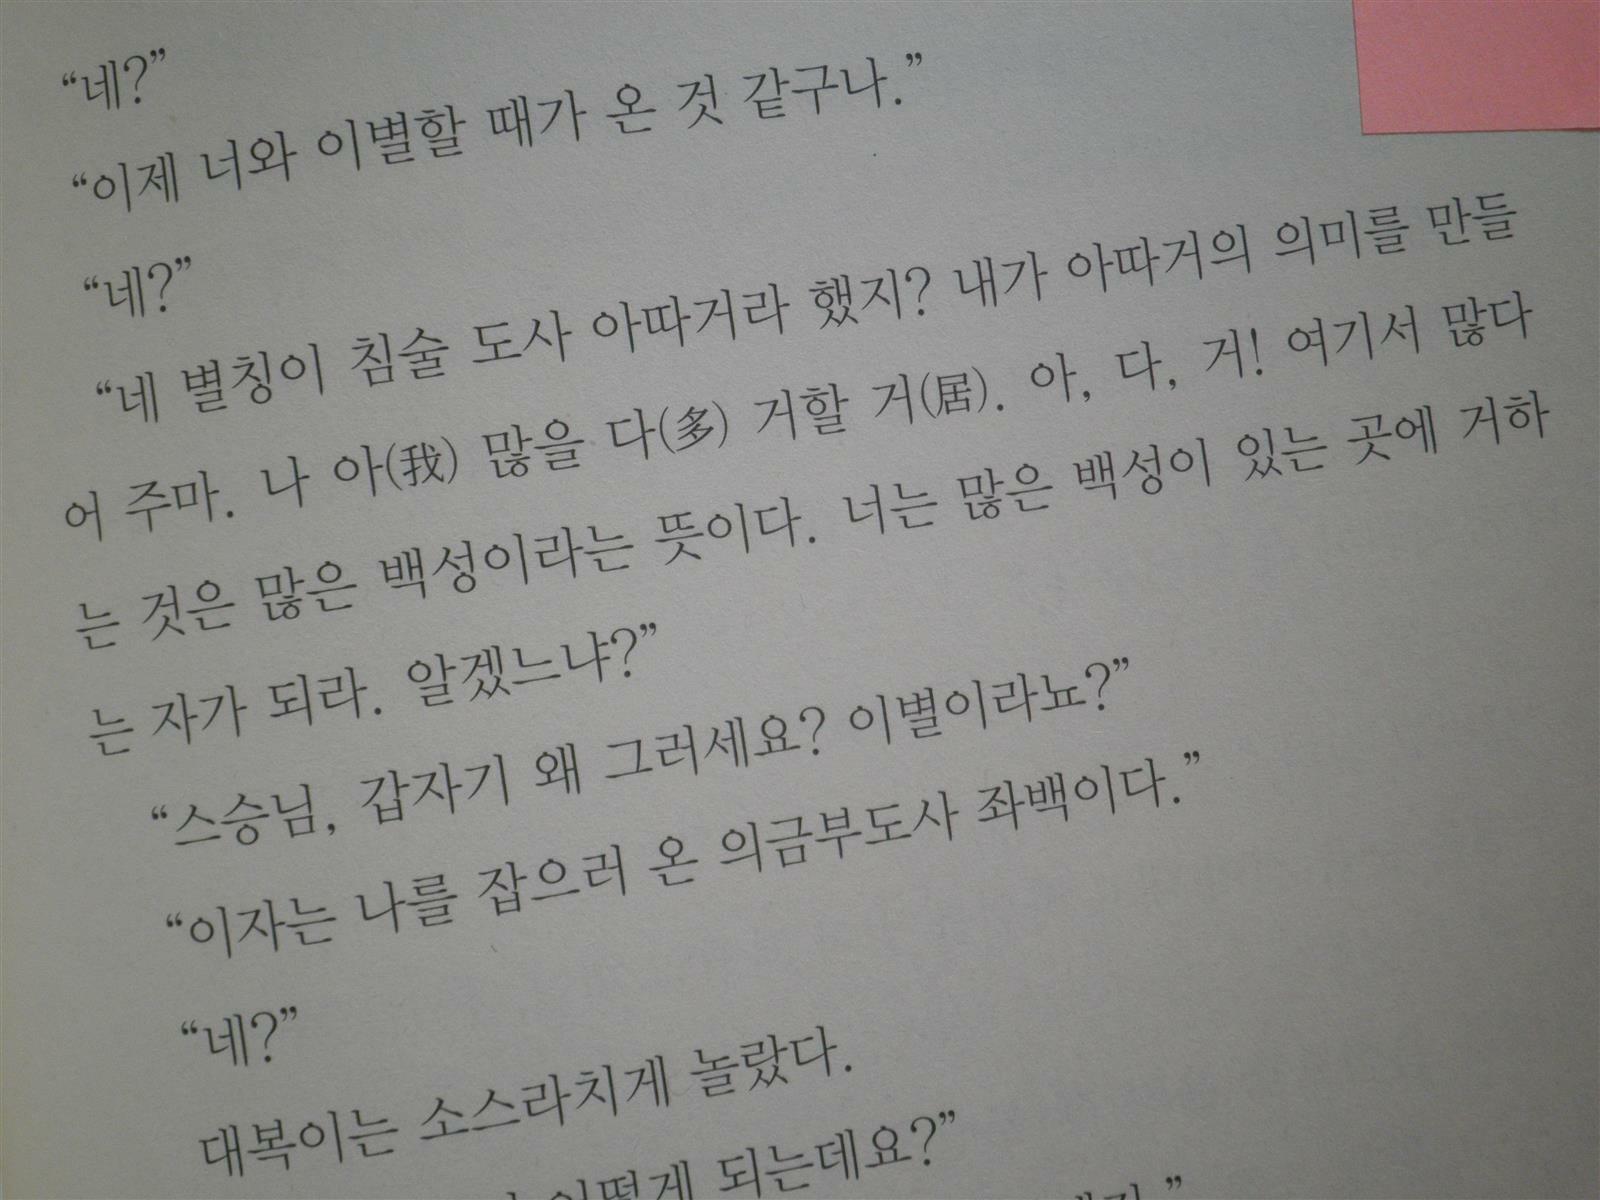 “네?”
“이제 너와 이별할 때가 온 것 같구나.”
“네?”
“네 별칭이 침술 도사 아따거라 했지? 내가 아따거의 의미를 만들
어 주마. 나 아(我) 많을 다(多) 거할 거(居). 아, 다, 거! 여기서 많다
는 것은 많은 백성이라는 뜻이다. 너는 많은 백성이 있는 곳에 거하
는 자가 되라. 알겠느냐?”
“스승님, 갑자기 왜 그러세요? 이별이라뇨?”
“이자는 나를 잡으러 온 의금부도사 좌백이다.”
“네?”
대복이는 소스라치게 놀랐다.
어떻게 되는데요?”